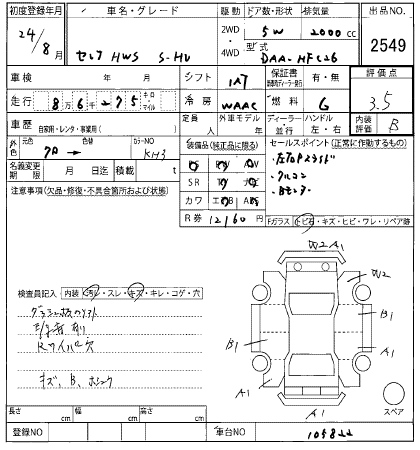 初度登録年月 車名・グレード 駆動 ドア数・形状 排気量 出品NO.
24/8月 セレナ HWS S-HV 2WD・4WD 5W 2000cc 2549
型式 DAA-HFC26
車検 年 月 シフト IAT 保証書 有・無 評価点
走行 8万6千275 キロ・マイル 冷房 WAAC 燃料 G 3.5
車歴 自家用・レンタ・事業用( ) 定員 人 外車モデル 年 ディーラー・並行 ハンドル 左・右 内装評価 B
外色 元色 色替 カラーNO KH3
装備品(純正品に限る) セールスポイント(正常に作動するもの)
名義変更期限 月 日迄 積載 t
PS PW AW
SR TV ナビ
カワ エアB
R券 12160円
注意事項(欠品・修復・不具合箇所および状態)
Fガラス(トビ石・キズ・ヒビ・ワレ・リペア跡
W2 A1
W2
B1
B1
A1
A1
A1
検査員記入 内装(汚レ・スレ・キズ・キレ・コゲ・穴
Rワイパー穴
キズ、B、
スペア
長さ cm 幅 cm 高さ cm
登録NO 車台NO 105822